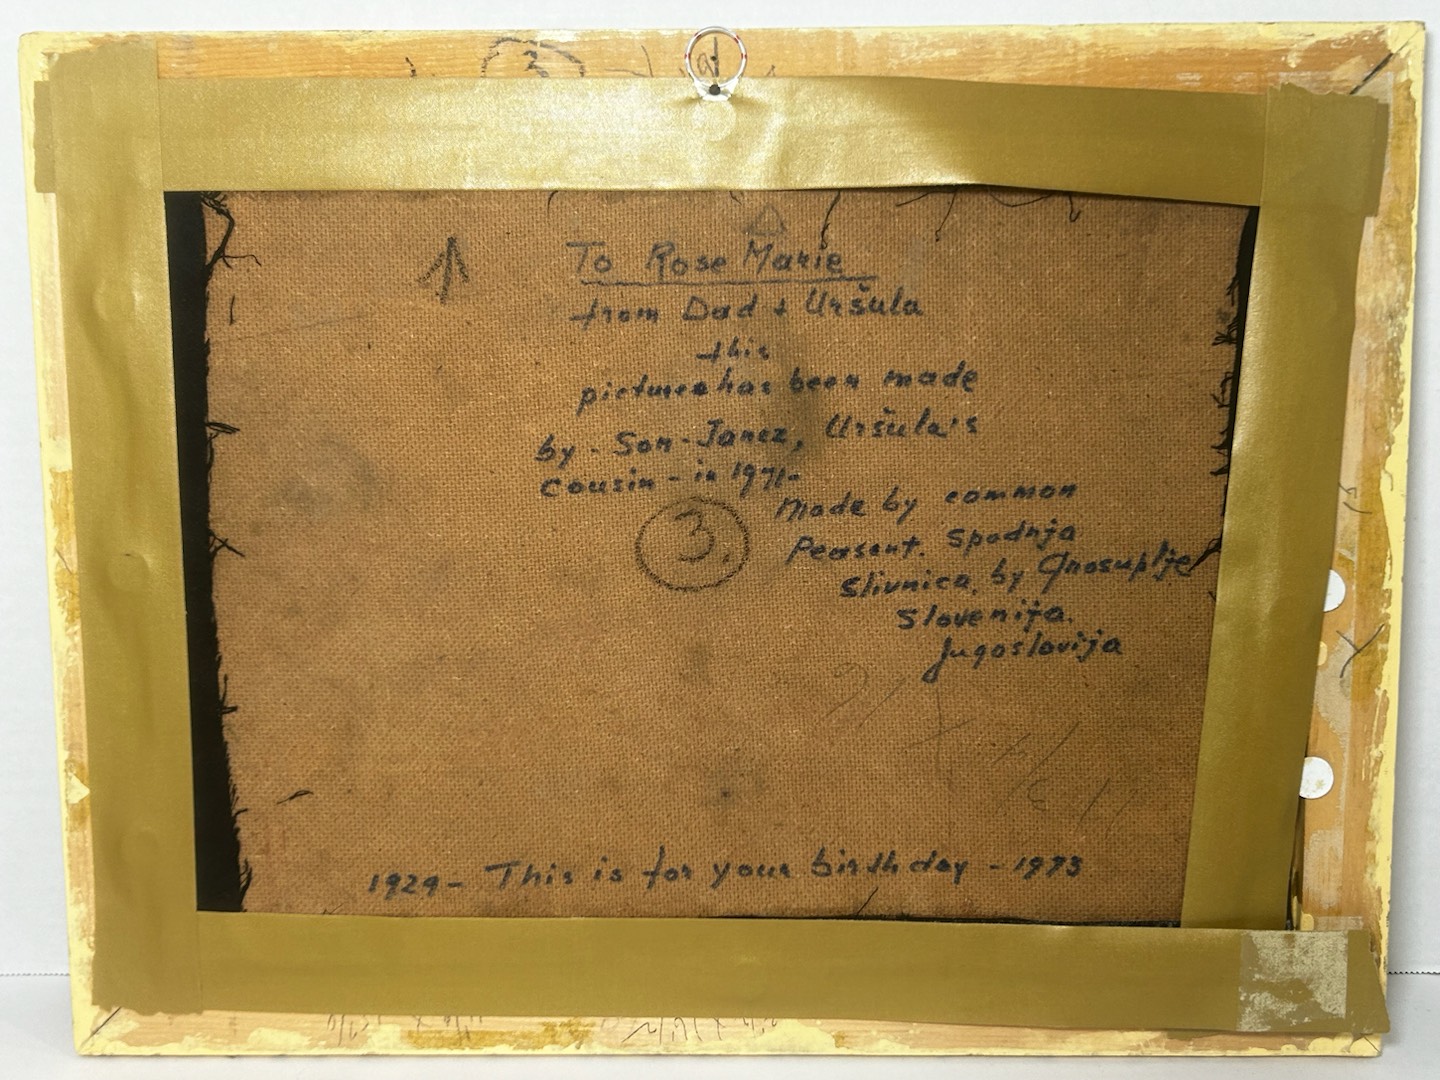 3
To Rose Marie
from Dad + Uršula
this
picture has been made
by - Son - Janez, Uršula's
cousin - in 1971 -
3.
Made by common
Peasant. Spodnja
Slivnica, by Grosuplje
Slovenija.
Jugoslovija
1929 - This is for your birthday - 1973